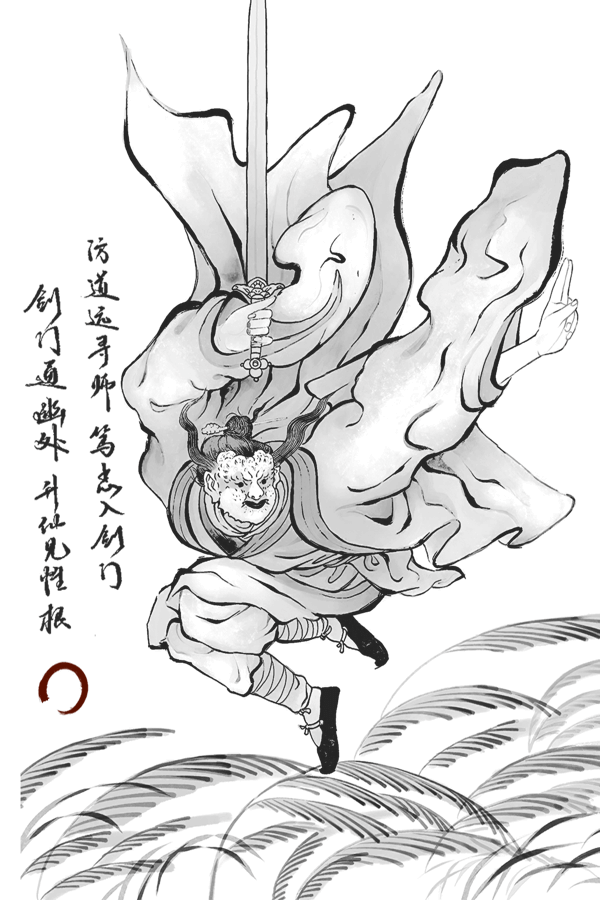 访道远寻师 笃志入剑门
剑门通幽处 升仙见惟根